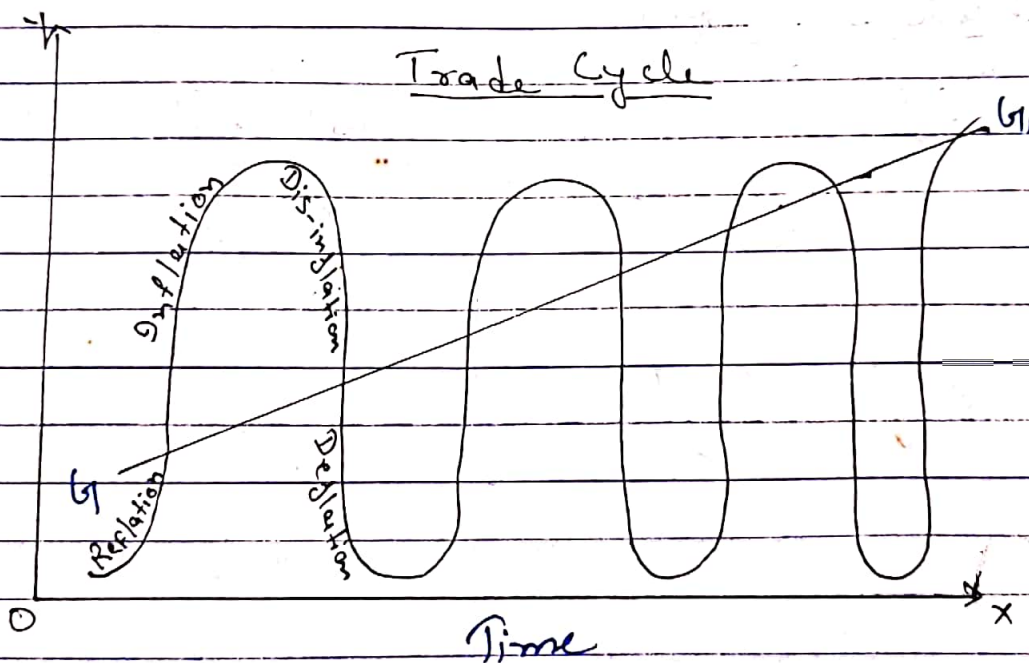 Y
Trade Cycle
G₁
Inflation
Dis-inflation
G
Reflation
Deflation
O
Time
X